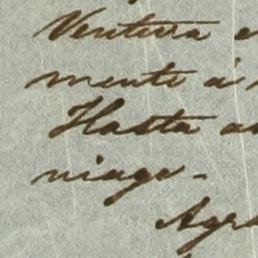 Ventura
mente á
Hasta
niage-
Agr